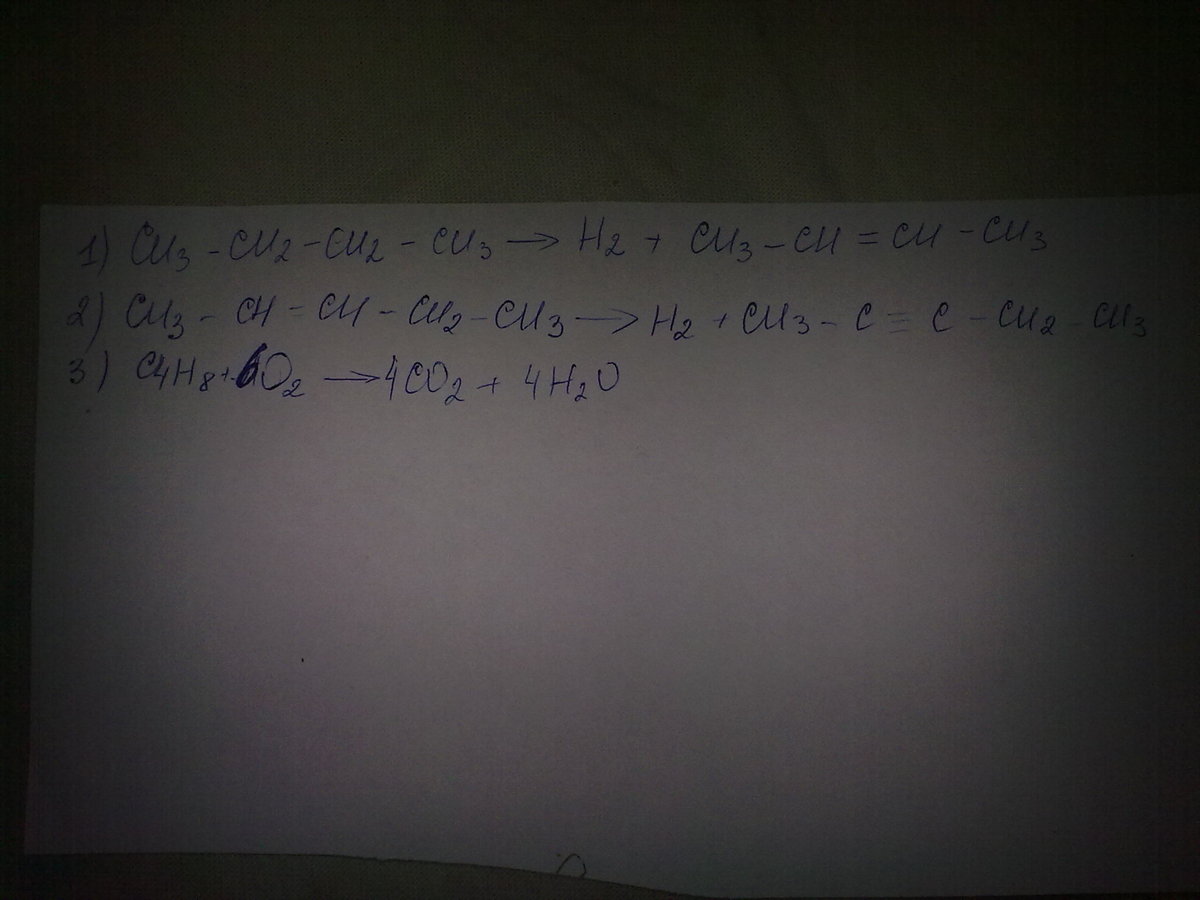 1) CH3 - CH2 - CH2 - CH3 → H2 + CH3 - CH = CH - CH3
2) CH3 - CH = CH - CH2 - CH3 → H2 + CH3 - C ≡ C - CH2 - CH3
3) C4H8 + 6O2 → 4CO2 + 4H2O